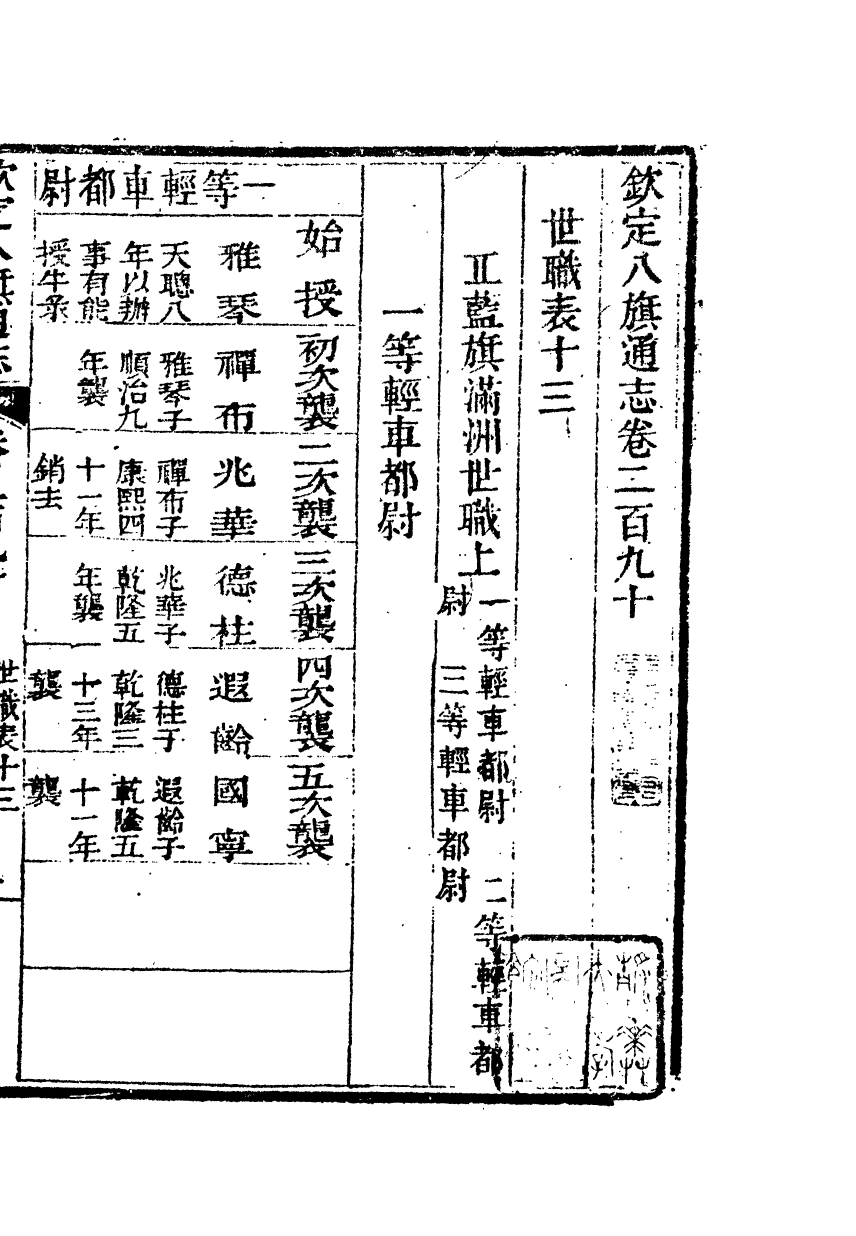 欽定八旗通志卷二百九十
世職表十三
正藍旗滿洲世職上 一等輕車都尉 二等輕車都
尉 三等輕車都尉
一等輕車都尉
一等輕車都尉
始授
初次襲
二次襲
三次襲
四次襲
五次襲
雅琴
天聰八
年以辦
事有能
授牛彔
禪布
雅琴子
順治九
年襲
兆華
禪布子
康熙四
十一年
銷去
德柱
兆華子
乾隆五
年襲
遐齡
德柱子
乾隆三
十三年
襲
國寧
遐齡子
乾隆五
十一年
襲
世職表十三